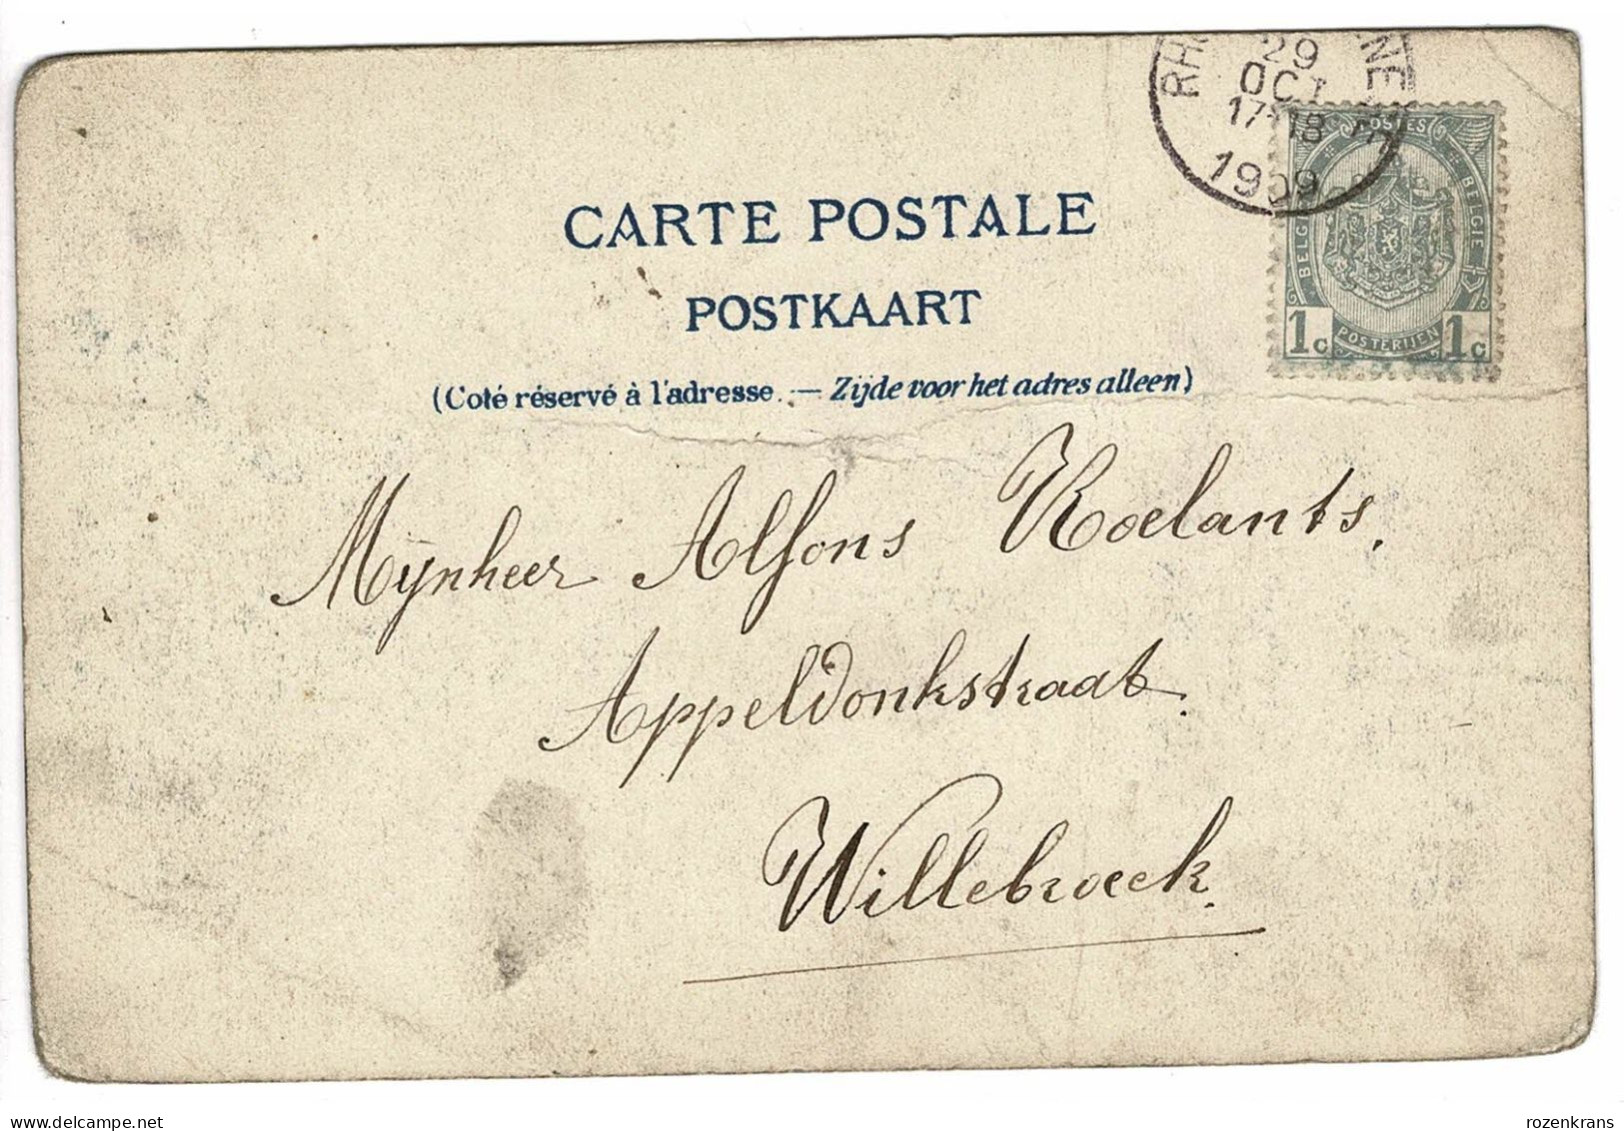 29
OCT
17-18
1909
POSTES
BELGIE
1c POSTERIJEN 1c
CARTE POSTALE
POSTKAART
(Coté réservé à l'adresse. — Zijde voor het adres alleen)
Mijnheer Alfons Roelants,
Appeldonkstraat.
Willebroeck.
rozenkrans